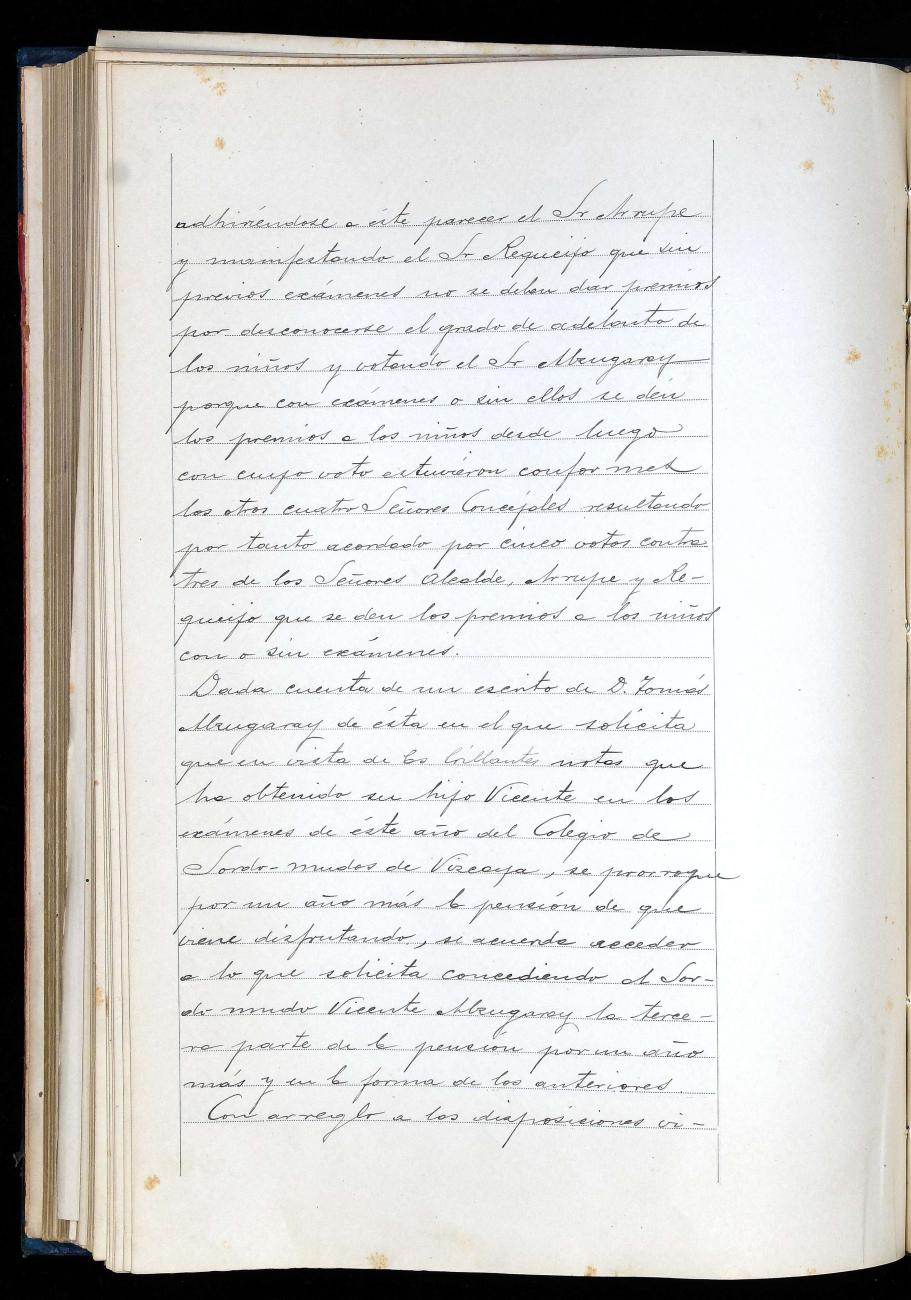 adhiriéndose a éste parecer el Sr Arrupe
y manifestando el Sr Requeijo que sin
previos exámenes no se deben dar premios
por desconocerse el grado de adelanto de
los niños y votando el Sr Muzugaray
porque con exámenes o sin ellos se dén
los premios a los niños desde luego
con cuyo voto estuvieron conformes
los otros cuatro Señores Concejales resultando
por tanto acordado por cinco votos contra
tres de los Señores Alcalde, Arrupe y Re-
queijo que se den los premios a los niños
con o sin exámenes.
Dada cuenta de un escrito de D. Tomás
Muzugaray de ésta en el que solicita
que en vista de las brillantes notas que
ha obtenido su hijo Vicente en los
exámenes de éste año del Colegio de
Sordo-mudos de Vizcaya, se prorrogue
por un año más la pensión de que
viene disfrutando, se acuerda acceder
a lo que solicita concediendo al Sor-
do mudo Vicente Muzugaray la terce-
ra parte de la pensión por un año
más y en la forma de los anteriores.
Con arreglo a las disposiciones vi-